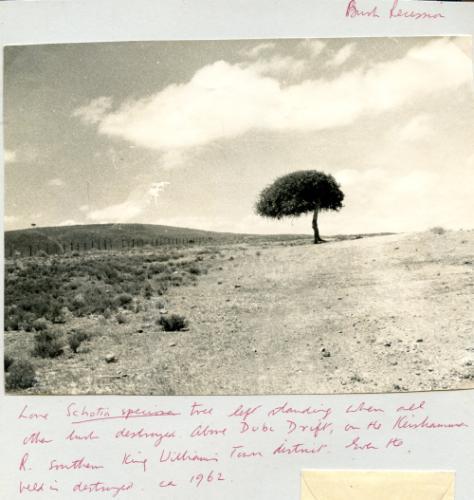 Bush Recession
Lone Schotia speciosa tree left standing when all
other bush destroyed. Above Dubu Drift, on the Keiskamma
R. southern King Williams Town district. Even the
veld is destroyed. ca 1962.